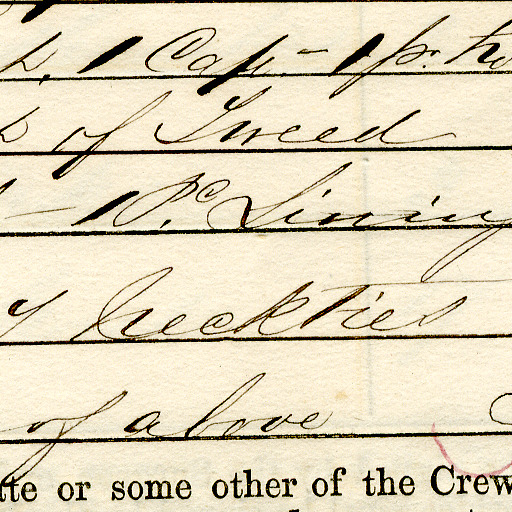 1 Cap - 1 pr.
of Tweed
- 1 Pc Lining
7 Neckties
of above
or some other of the Crew